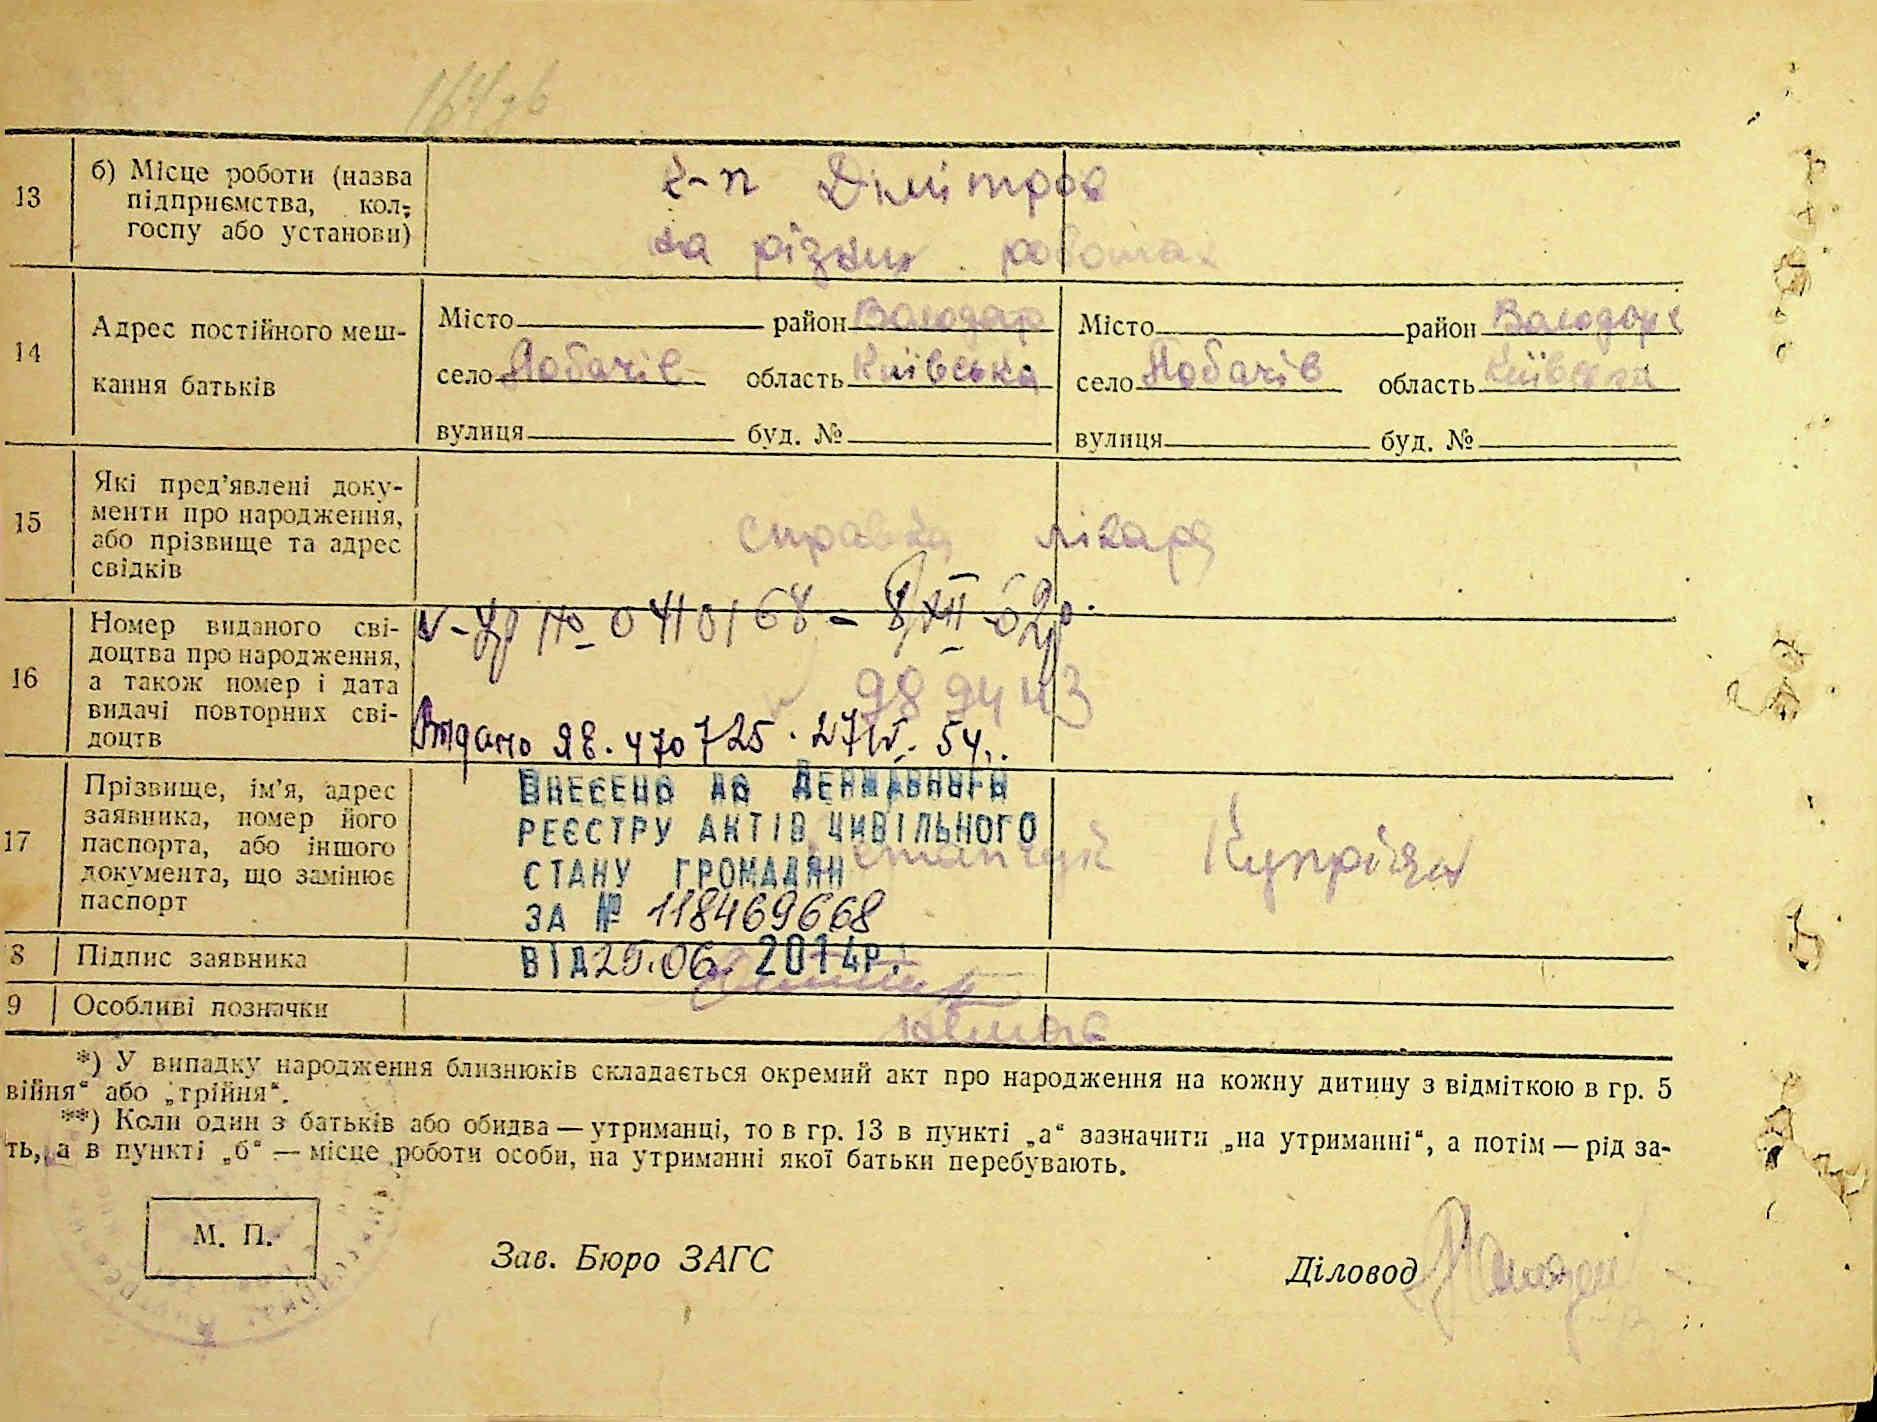 13
б) Місце роботи (назва
підприємства, кол-
госпу або установи)
к-п Дімітров
на різних роботах
14
Адрес постійного меш-
кання батьків
Місто район Володар
село Лобачів область Київська
вулиця буд. №
Місто район Володарк
село Лобачів область Київська
вулиця буд. №
15
Які пред’явлені доку-
менти про народження,
або прізвище та адрес
свідків
справка лікаря
16
Номер виданого сві-
доцтва про народження,
а також номер і дата
видачі повторних сві-
доцтв
0410168 - 8/XII-62р.
989443
Видано ЯЕ. 470725. 27IV. 54.
17
Прізвище, ім’я, адрес
заявника, номер його
паспорта, або іншого
документа, що замінює
паспорт
Купріян
ВНЕСЕНО ДО ДЕРЖАВНОГО
РЕЄСТРУ АКТІВ ЦИВІЛЬНОГО
СТАНУ ГРОМАДЯН
ЗА № 118469668
ВІД 25.06. 2014р.
8 Підпис заявника
9 Особливі позначки
немає
*) У випадку народження близнюків складається окремий акт про народження на кожну дитину з відміткою в гр. 5
війня“ або „трійня“.
**) Коли один з батьків або обидва — утриманці, то в гр. 13 в пункті „а“ зазначити „на утриманні“, а потім — рід за-
ть, а в пункті „б“ — місце роботи особи, на утриманні якої батьки перебувають.
М. П.
Зав. Бюро ЗАГС
Діловод